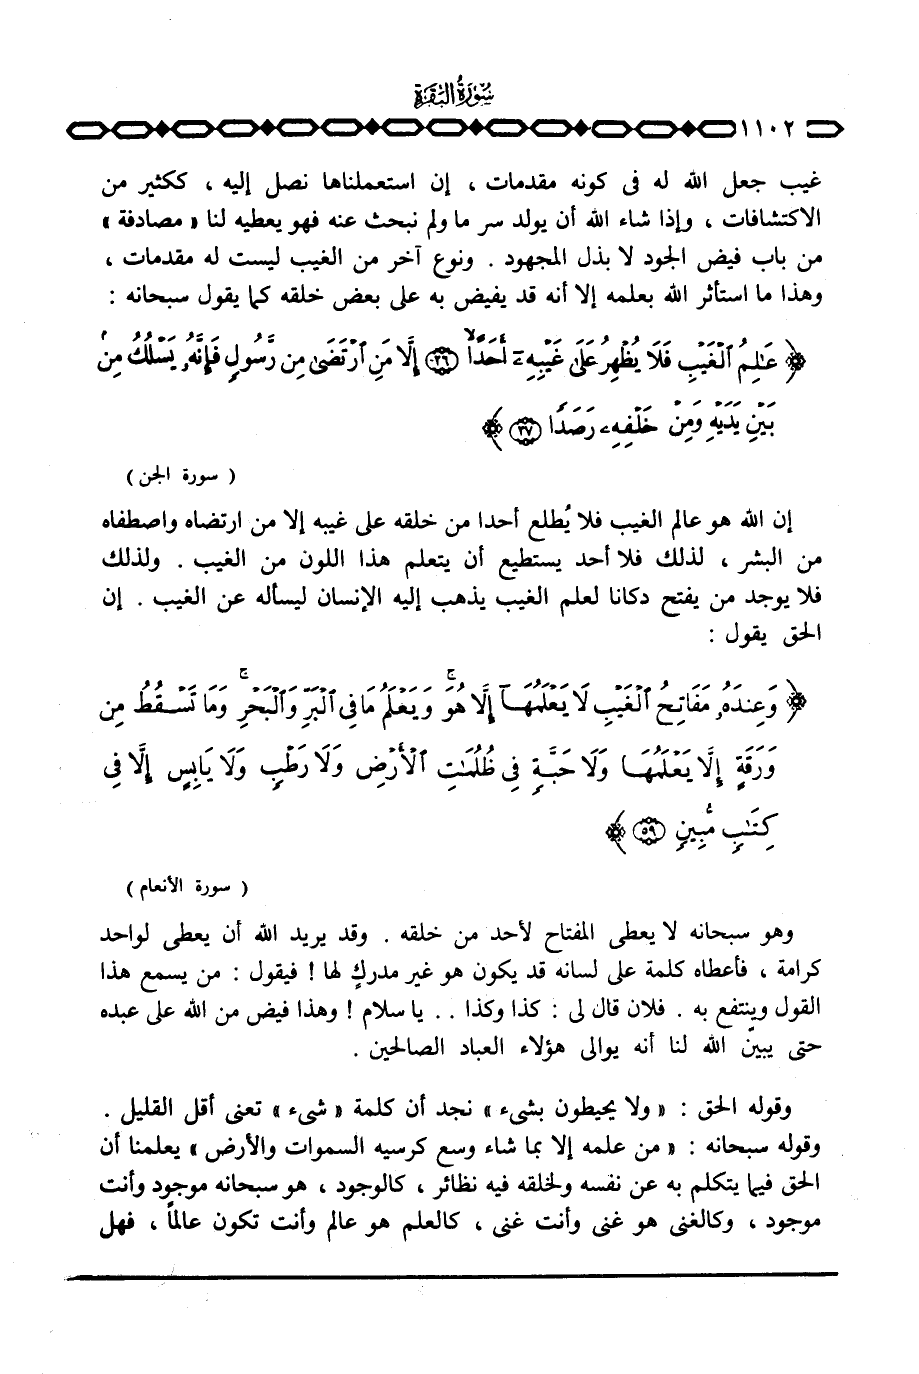 سُورَةُ البَقَرَةِ
١١٠٢
غيب جعل الله له فى كونه مقدمات ، إن استعملناها نصل إليه ، ككثير من
الاكتشافات ، وإذا شاء الله أن يولد سر ما ولم نبحث عنه فهو يعطيه لنا « مصادفة »
من باب فيض الجود لا بذل المجهود . ونوع آخر من الغيب ليست له مقدمات ،
وهذا ما استأثر الله بعلمه إلا أنه قد يفيض به على بعض خلقه كما يقول سبحانه :
﴿ عَٰلِمُ ٱلْغَيْبِ فَلَا يُظْهِرُ عَلَىٰ غَيْبِهِۦٓ أَحَدًا ۝٢٦ إِلَّا مَنِ ٱرْتَضَىٰ مِن رَّسُولٍ فَإِنَّهُۥ يَسْلُكُ مِنۢ
بَيْنِ يَدَيْهِ وَمِنْ خَلْفِهِۦ رَصَدًا ۝٢٧ ﴾
( سورة الجن )
إن الله هو عالم الغيب فلا يُطلع أحدا من خلقه على غيبه إلا من ارتضاه واصطفاه
من البشر ، لذلك فلا أحد يستطيع أن يتعلم هذا اللون من الغيب . ولذلك
فلا يوجد من يفتح دكانا لعلم الغيب يذهب إليه الإنسان ليسأله عن الغيب . إن
الحق يقول :
﴿ وَعِندَهُۥ مَفَاتِحُ ٱلْغَيْبِ لَا يَعْلَمُهَآ إِلَّا هُوَ ۚ وَيَعْلَمُ مَا فِى ٱلْبَرِّ وَٱلْبَحْرِ ۚ وَمَا تَسْقُطُ مِن
وَرَقَةٍ إِلَّا يَعْلَمُهَا وَلَا حَبَّةٍ فِى ظُلُمَٰتِ ٱلْأَرْضِ وَلَا رَطْبٍ وَلَا يَابِسٍ إِلَّا فِى
كِتَٰبٍ مُّبِينٍ ۝٥٩ ﴾
( سورة الأنعام )
وهو سبحانه لا يعطى المفتاح لأحد من خلقه . وقد يريد الله أن يعطى لواحد
كرامة ، فأعطاه كلمة على لسانه قد يكون هو غير مدركٍ لها ! فيقول : من يسمع هذا
القول وينتفع به . فلان قال لى : كذا وكذا . . يا سلام ! وهذا فيض من الله على عبده
حتى يبينّ الله لنا أنه يوالى هؤلاء العباد الصالحين .
وقوله الحق : « ولا يحيطون بشىء » نجد أن كلمة « شىء » تعنى أقل القليل .
وقوله سبحانه : « من علمه إلا بما شاء وسع كرسيه السموات والأرض » يعلمنا أن
الحق فيما يتكلم به عن نفسه ولخلقه فيه نظائر ، كالوجود ، هو سبحانه موجود وأنت
موجود ، وكالغنى هو غنى وأنت غنى ، كالعلم هو عالم وأنت تكون عالماً ، فهل